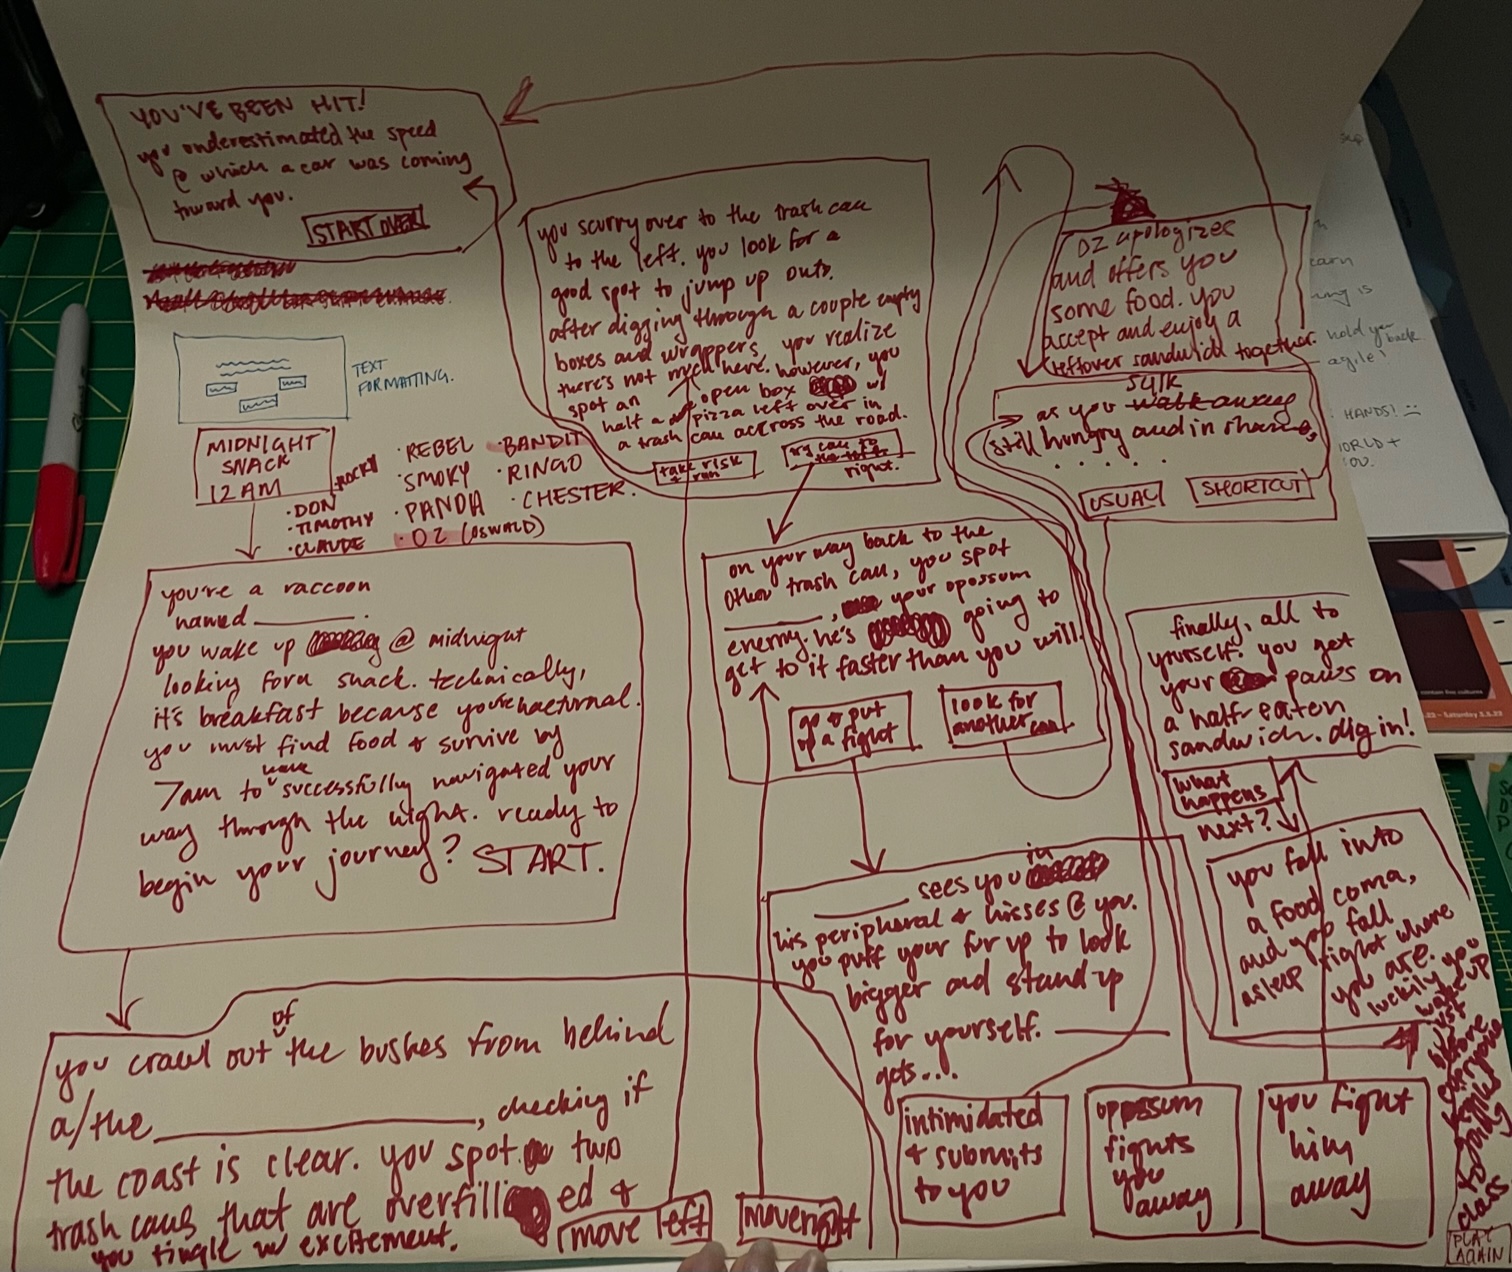 YOU'VE BEEN HIT!
you underestimated the speed
@ which a car was coming
toward you.
START OVER
TEXT
FORMATTING.
MIDNIGHT
SNACK
12 AM
ROCKY
• DON
• TIMOTHY
• CLAUDE
• REBEL
• SMOKY
• PANDA
• OZ (OSWALD)
• BANDIT
• RINGO
• CHESTER.
you're a raccoon
named ________.
you wake up @ midnight
looking for a snack. technically,
it's breakfast because you're nocturnal.
you must find food + survive by
7am to have successfully navigated your
way through the night. ready to
begin your journey? START.
you crawl out of the bushes from behind
a/the ____________, checking if
the coast is clear. you spot two
trash cans that are overfilled +
you tingle w/ excitement.
move left
move right
you scurry over to the trash can
to the left. you look for a
good spot to jump up onto.
after digging through a couple empty
boxes and wrappers, you realize
there's not much here. however, you
spot an open box w/
half a pizza left over in
a trash can accross the road.
take risk
+ run
try can to
the
right.
on your way back to the
other trash can, you spot
________, your opossum
enemy. he's going to
get to it faster than you will.
go + put
up a fight
look for
another can
________ sees you in
his peripheral + hisses @ you.
you puff your fur up to look
bigger and stand up
for yourself. ________
gets...
intimidated
+ submits
to you
opossum
fights
you
away
you fight
him
away
OZ apologizes
and offers you
some food. you
accept and enjoy a
leftover sandwich together.
as you sulk walk away
still hungry and in shame,
. . . . .
USUAL
SHORTCUT
finally, all to
yourself. you get
your paws on
a half-eaten
sandwich. dig in!
what
happens
next?
you fall into
a food coma,
and you fall
asleep right where
you are.
luckily you
wake up
just
before
everyone
going
to
class
PLAY
AGAIN
earn
hold you back
agile!
HANDS!
WORLD +